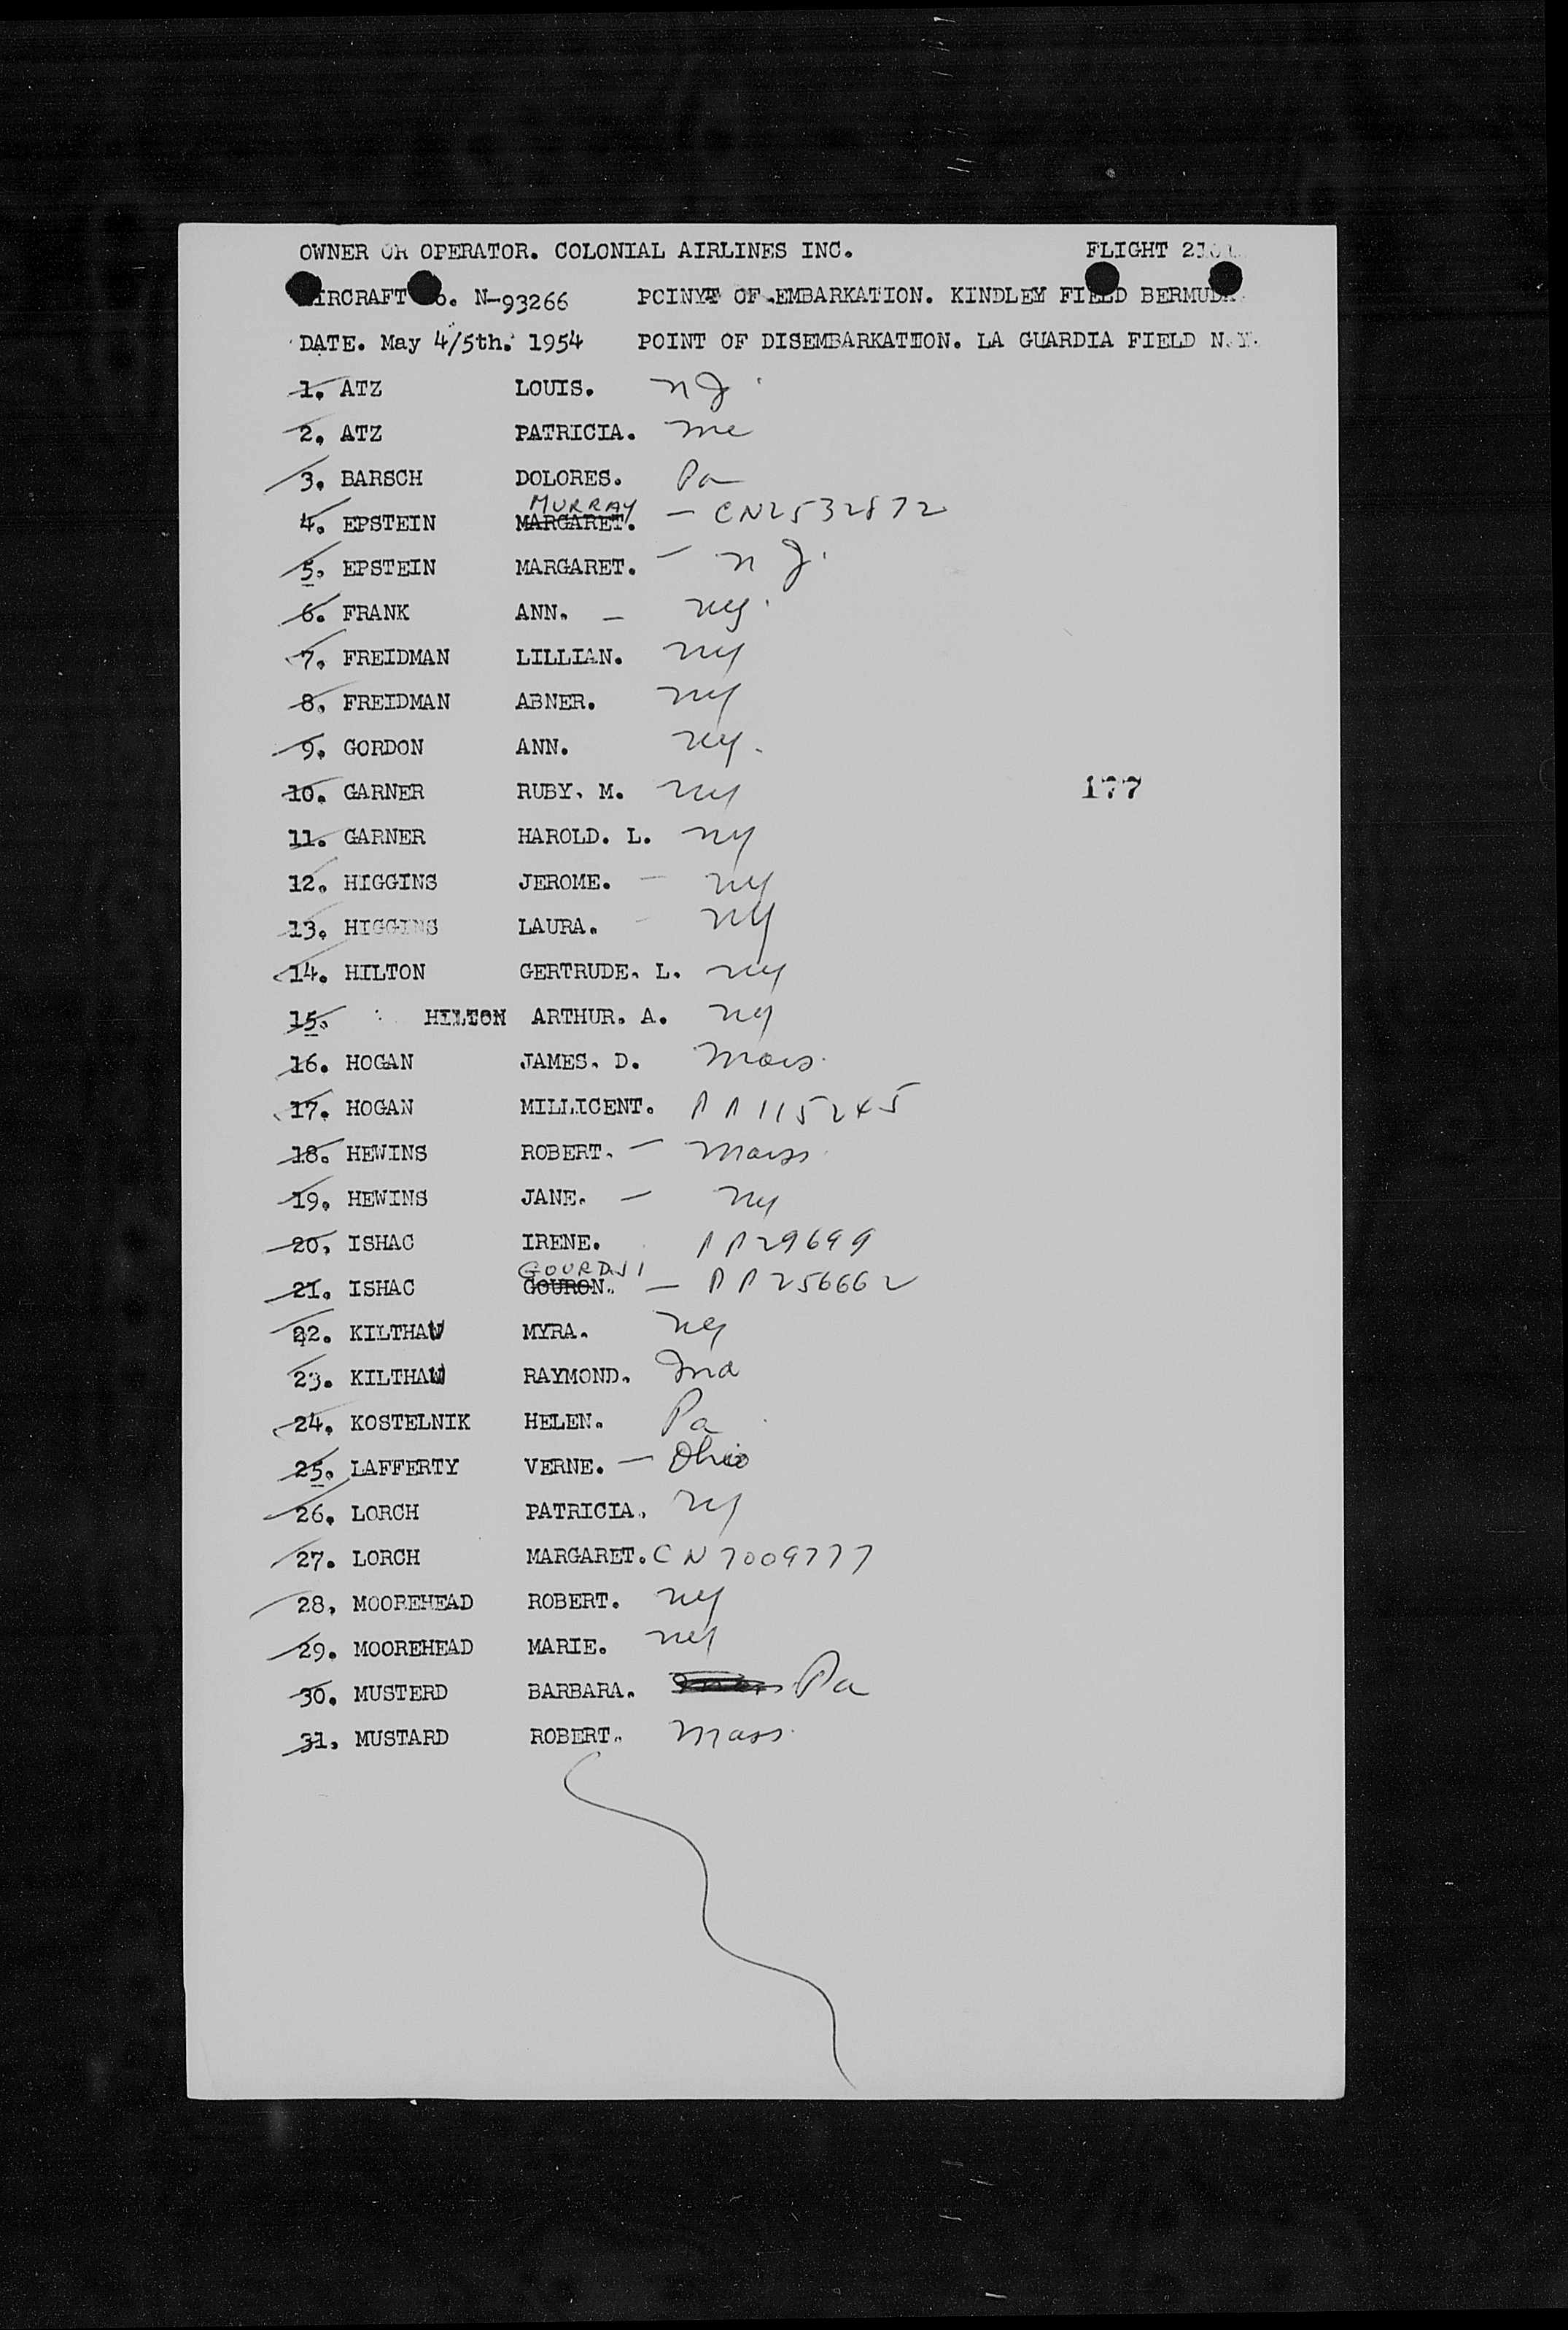 OWNER OR OPERATOR. COLONIAL AIRLINES INC. FLIGHT
AIRCRAFT No. N-93266 POINYT OF EMBARKATION. KINDLEY FIELD BERMUDA.
DATE. May 4/5th. 1954 POINT OF DISEMBARKATION. LA GUARDIA FIELD N.Y.
1. ATZ LOUIS. NJ
2. ATZ PATRICIA. Me
3. BARSCH DOLORES. Pa
MURRAY
4. EPSTEIN MARGARET. — CN2532872
5. EPSTEIN MARGARET. — NJ.
6. FRANK ANN. — NY.
7. FREIDMAN LILLIAN. NY
8. FREIDMAN ABNER. NY
9. GORDON ANN. NY.
10. GARNER RUBY. M. NY
177
11. GARNER HAROLD. L. NY
12. HIGGINS JEROME. — NY
13. HIGGINS LAURA. — NY
14. HILTON GERTRUDE. L. NY
15. HILTON ARTHUR. A. NY
16. HOGAN JAMES. D. Mass.
17. HOGAN MILLICENT. PP115245
18. HEWINS ROBERT. — Mass.
19. HEWINS JANE. — NY
20. ISHAC IRENE. PP29699
GOURDJI
21. ISHAC GOURON. — PP256662
22. KILTHAW MYRA. NY
23. KILTHAW RAYMOND. Ind
24. KOSTELNIK HELEN. Pa
25. LAFFERTY VERNE. — Ohio
26. LORCH PATRICIA. NY
27. LORCH MARGARET. CN7009777
28. MOOREHEAD ROBERT. NY
29. MOOREHEAD MARIE. NY
30. MUSTERD BARBARA. Pa
31. MUSTARD ROBERT. Mass.